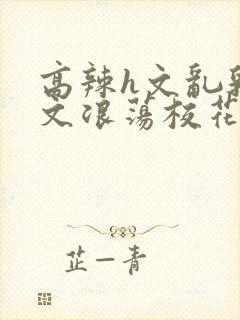 高辣h文乱乳
文浪荡校花
芷一青